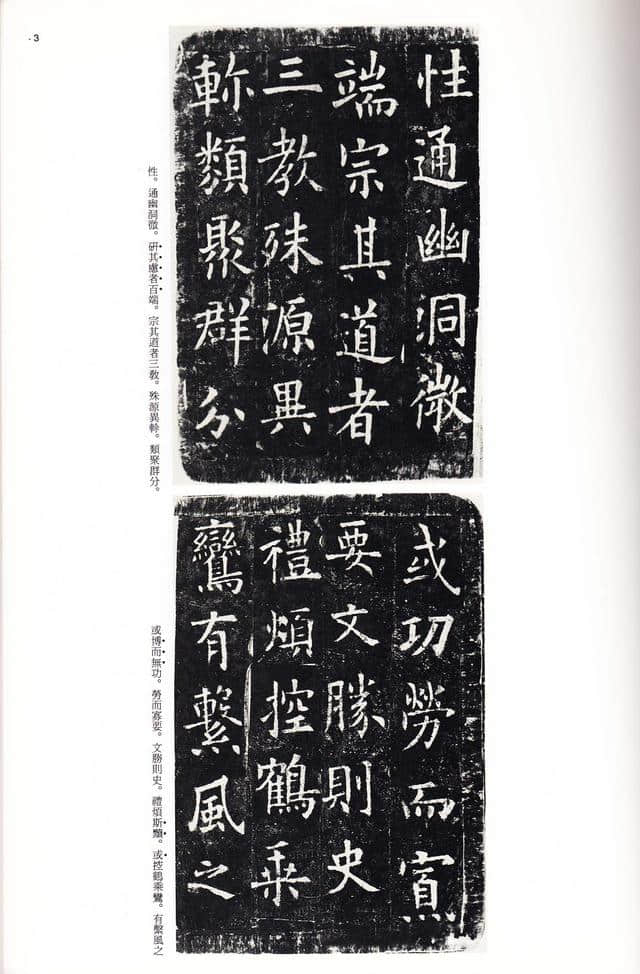 3
性通幽洞微
端宗其道者
三教殊源異
軫類聚群分
性。通幽洞微。研其慮者百端。宗其道者三教。殊源異軫。類聚群分。
或功勞而寡
要文勝則史
禮煩控鶴乘
鸞有繫風之
或博而無功。勞而寡要。文勝則史。禮煩斯黷。或控鶴乘鸞。有繫風之